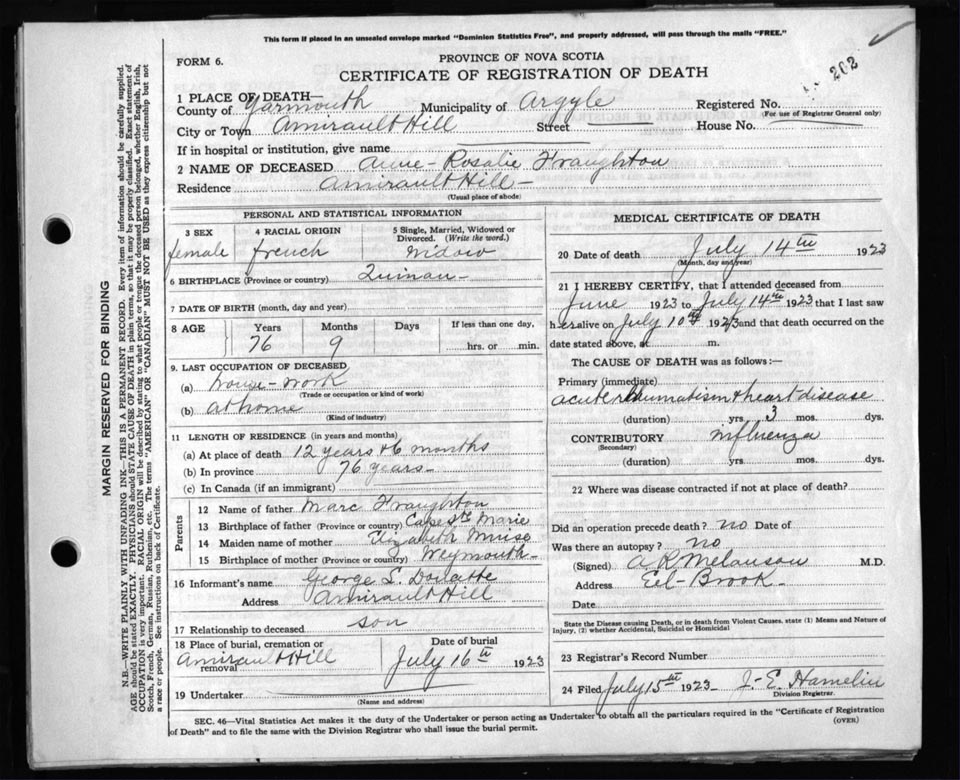 This form if placed in an unsealed envelope marked "Dominion Statistics Free", and properly addressed, will pass through the mails "FREE."
202
FORM 6.
PROVINCE OF NOVA SCOTIA
CERTIFICATE OF REGISTRATION OF DEATH
1 PLACE OF DEATH—
County of Yarmouth Municipality of Argyle Registered No.
(For use of Registrar General only)
City or Town Amirault Hill Street House No.
If in hospital or institution, give name
2 NAME OF DECEASED Anne-Rosalie Fraughton
Residence Amirault Hill—
(Usual place of abode)
PERSONAL AND STATISTICAL INFORMATION
3 SEX 4 RACIAL ORIGIN 5 Single, Married, Widowed or Divorced. (Write the word.)
female french widow
6 BIRTHPLACE (Province or country) Quinan—
7 DATE OF BIRTH (month, day and year)
8 AGE Years Months Days If less than one day,
76 9 hrs. or min.
9. LAST OCCUPATION OF DECEASED
(a) house-work
(Trade or occupation or kind of work)
(b) at home
(Kind of industry)
11 LENGTH OF RESIDENCE (in years and months)
(a) At place of death 12 years & 6 months
(b) In province 76 years—
(c) In Canada (if an immigrant)
Parents
12 Name of father Marc Fraughton
13 Birthplace of father (Province or country) Cape Ste Marie
14 Maiden name of mother Elizabeth
15 Birthplace of mother (Province or country) Weymouth—
16 Informant's name George L.
Address Amirault Hill
17 Relationship to deceased son
18 Place of burial, cremation or removal Date of burial
Amirault Hill July 16th 1923
19 Undertaker
(Name and address)
MEDICAL CERTIFICATE OF DEATH
20 Date of death July 14th 1923
(Month, day and year)
21 I HEREBY CERTIFY, that I attended deceased from
June 1923 to July 14th 1923 that I last saw
her alive on July 10th 1923 and that death occurred on the
date stated above, at m.
The CAUSE OF DEATH was as follows:—
Primary (immediate)
acute rhumatism & heart disease
(duration) yrs. 3 mos. dys.
CONTRIBUTORY influenza
(Secondary)
(duration) yrs. mos. dys.
22 Where was disease contracted if not at place of death?
Did an operation precede death? no Date of
Was there an autopsy? no
(Signed) A R Melanson M.D.
Address Eel-Brook—
Date
State the Disease causing Death, or in death from Violent Causes, state (1) Means and Nature of
Injury, (2) whether Accidental, Suicidal or Homicidal
23 Registrar's Record Number
24 Filed July 15th 1923 J.-E. Hamelin
Division Registrar.
SEC. 46—Vital Statistics Act makes it the duty of the Undertaker or person acting as Undertaker to obtain all the particulars required in the "Certificate of Registration
of Death" and to file the same with the Division Registrar who shall issue the burial permit.
(OVER)
MARGIN RESERVED FOR BINDING
N.B.—WRITE PLAINLY WITH UNFADING INK—THIS IS A PERMANENT RECORD. Every item of information should be carefully supplied.
AGE should be stated EXACTLY. PHYSICIANS should STATE CAUSE OF DEATH in plain terms, so that it may be properly classified. Exact statement of
OCCUPATION is very important. RACIAL ORIGIN will be described by stating to what people or tongue the deceased person belonged, whether English, Irish,
Scotch, French, German, Russian, Ruthenian, etc. The terms "AMERICAN" OR "CANADIAN" MUST NOT BE USED as they express citizenship but not
a race or people. See instructions on back of Certificate.